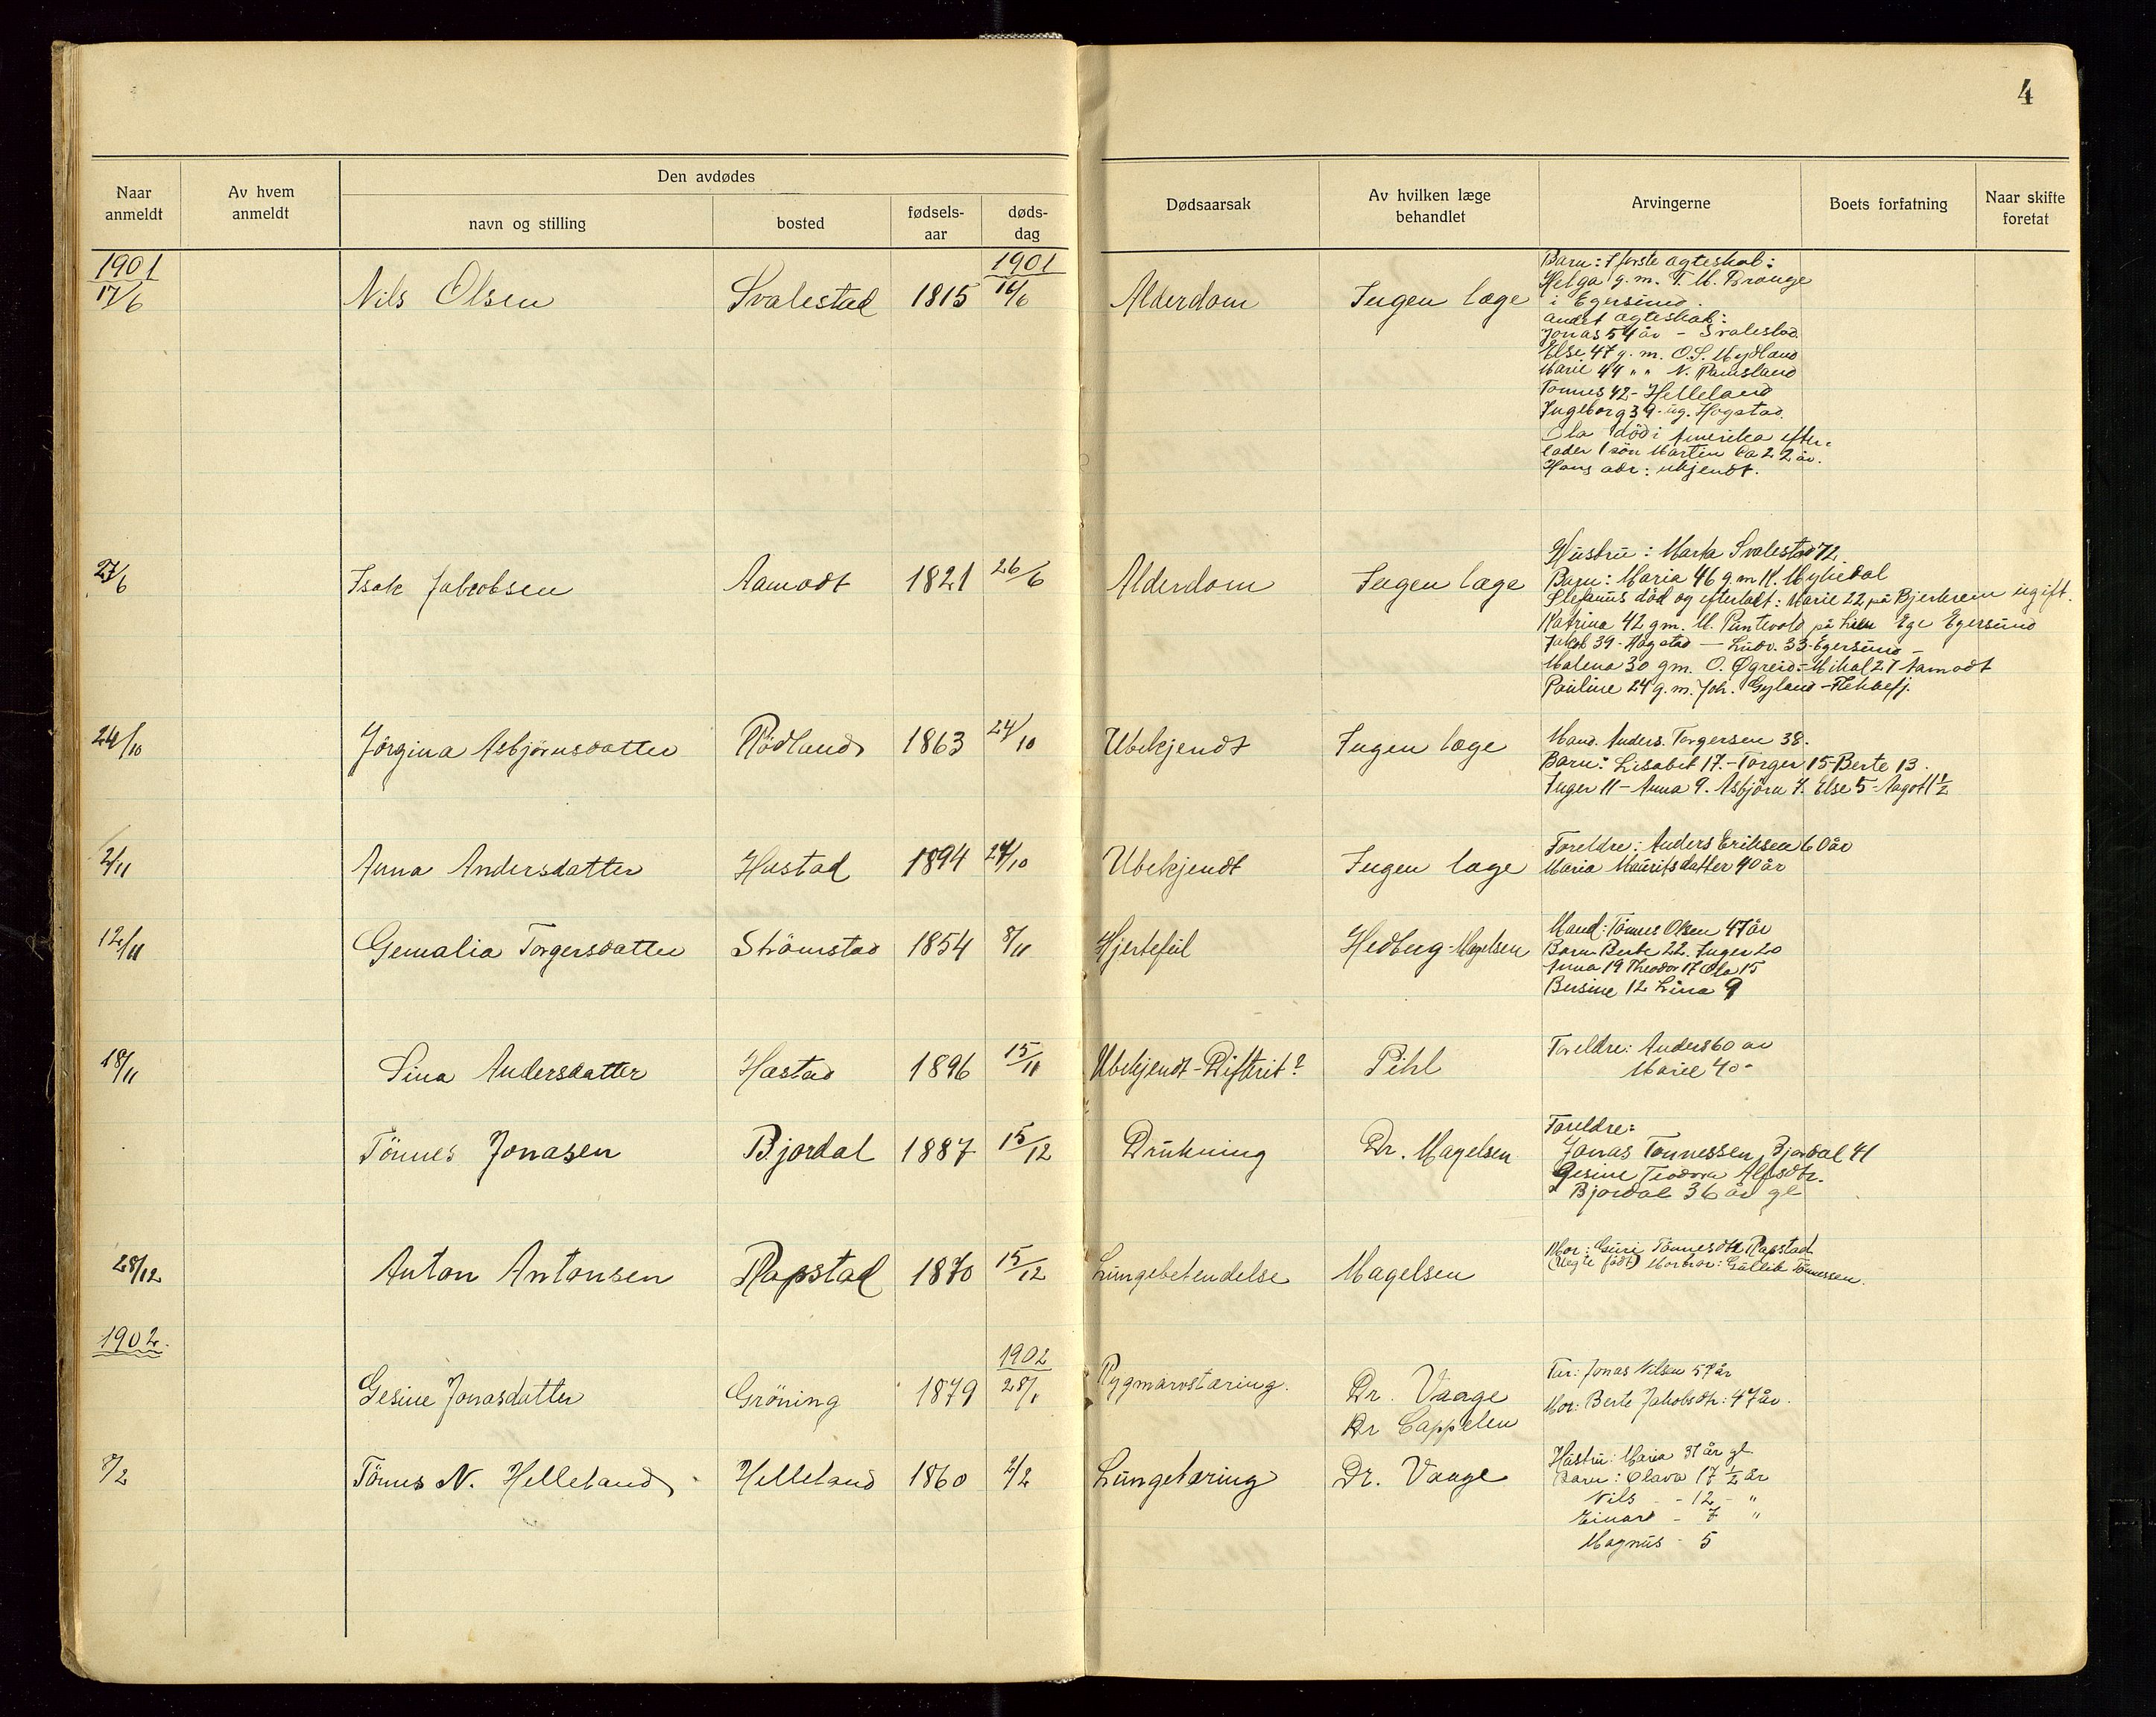 4
Naar anmeldt
Av hvem anmeldt
Den avdødes
navn og stilling
bosted
fødsels-aar
døds-dag
Dødsaarsak
Av hvilken læge behandlet
Arvingerne
Boets forfatning
Naar skifte foretat
1901
1901
17/6 Nils Olsen Svalestad 1815 14/6 Alderdom Ingen læge
Barn: I første ægteskab:
Helga g.m. T. M.
i Egersund.
andet ægteskab:
Jonas 54 år - Svalestad.
Else 47 g. m. O.S. Mydland
Marie 44 " " N. Ramsland
Tønnes 42 - Helleland
Ingeborg 39 - ug. Høgstad.
Ola död i Amerika efter-
lader 1 sön Martin ca 22 år.
Hans adr: ukjendt.
27/6 Isak Jakobsen Aamodt 1821 26/6 Alderdom Ingen læge
Hustru: Marta Svalestad 72.
Barn: Maria 46 g.m K. Myhedal
Stefanus död og efterladt: Marie 22 på Bjerkrem ugift.
Katrina 42 gm. M. Puntevold på Ege Egersund
Jakob 39 - Høgstad - Ludv. 33 - Egersund -
Malena 30 gm. O. Øgreid - Mikal 27 Aamodt
Pauline 24 g.m. Joh. Gyland - Flekkefj.
24/10 Jörgina Asbjörnsdatter Rödland 1863 24/10 Ubekjendt Ingen læge
Mand. Anders. Torgersen 38.
Barn: Lisabet 17. - Torger 15 - Berte 13.
Inger 11 - Anna 9. Asbjörn 7. Else 5 - Aagot 1 1/2
2/11 Anna Andersdatter Hæstad 1894 24/10 Ubekjendt Ingen læge
Foreldre: Anders Eriksen 60 år
Maria Mauritsdatter 40 år
12/11 Gemalia Torgersdatter Strömstad 1854 8/11 Hjertefeil Hedberg - Magelsen
Mand: Tönnes Olsen 47 år
Barn Berte 22. Inger 20
Anna 19 Theodor 17 Ola 15
Bersine 12 Lina 9
18/11 Sina Andersdatter Hæstad 1896 15/11 Ubekjendt - Difterit? Pihl
Foreldre: Anders 60 år
Marie 40 -
Tönnes Jonasen Bjordal 1887 15/12 Drukning Dr. Magelsen
Foreldre:
Jonas Tønnessen Bjordal 41
Gesine Teodora Alfsdtr.
Bjordal 36 år gl
28/12 Anton Antonsen Rapstad 1870 15/12 Lungebetendelse Magelsen
Mor: Guri Tönnesdtr Rapstad
(Uegte födt) Morbror: Gullik Tönnessen.
1902.
1902
Gesine Jonasdatter Gröning 1879 28/1 Rygmarvstæring. Dr. Vaage
Dr Cappelen
Far: Jonas Nilsen 57 år
Mor: Berte Jakobsdtr: 47 år.
7/2 Tönnes N. Helleland Helleland 1860 2/2 Lungetæring Dr. Vaage
Hustru: Maria 37 år gl.
Barn: Olava 17 1/2 år
Nils - 12 - "
Einar - 7 "
Magnus - 5